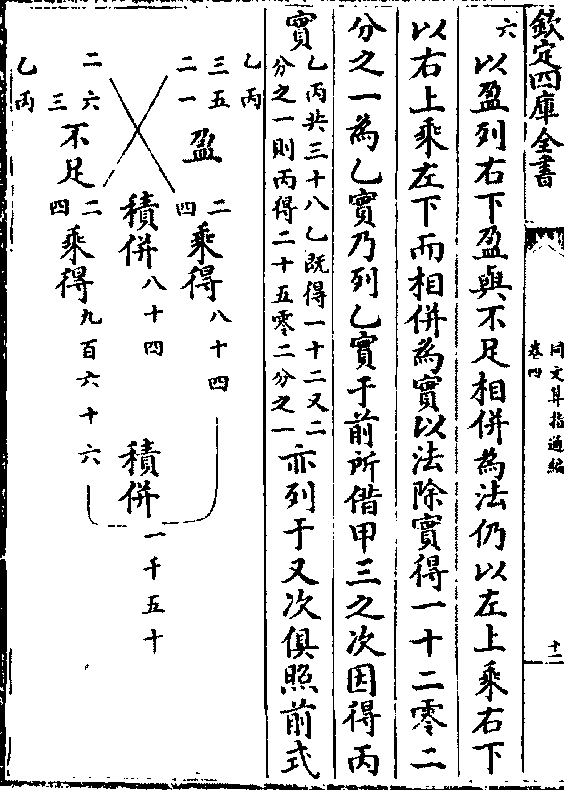 欽定四庫全書
同文算指通編
卷四
十二
六
以盈列右下盈與不足相併為法仍以左上乘右下
以右上乘左下而相併為實以法除實得一十二零二
分之一為乙實乃列乙實于前所借甲三之次因得丙
實
乙丙共三十八乙既得一十二又二
分之一則丙得二十五零二分之一
亦列于又次俱照前式
乙丙
三五
二一
盈
二
四
乘得
八十四
積併
八十四
積併
一千五十
二六
三
乙丙
不足
二
四
乘得
九百六十六